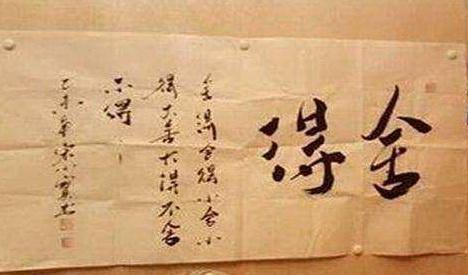 舍得
舍得舍得小舍小
得大舍大得不舍
不得
乙未年宋小宝书